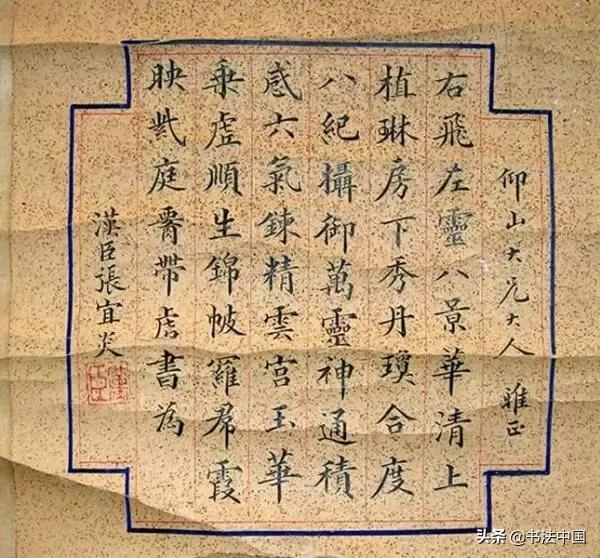 仰山大兄大人 雅正
右飛左靈八景華清上
植琳房下秀丹瓊合度
八紀攝御萬靈神通積
感六氣鍊精雲宮玉華
乘虛順生錦帔羅帬霞
映紫庭帶虎書為
漢臣張宜炎
头条 @书法中国